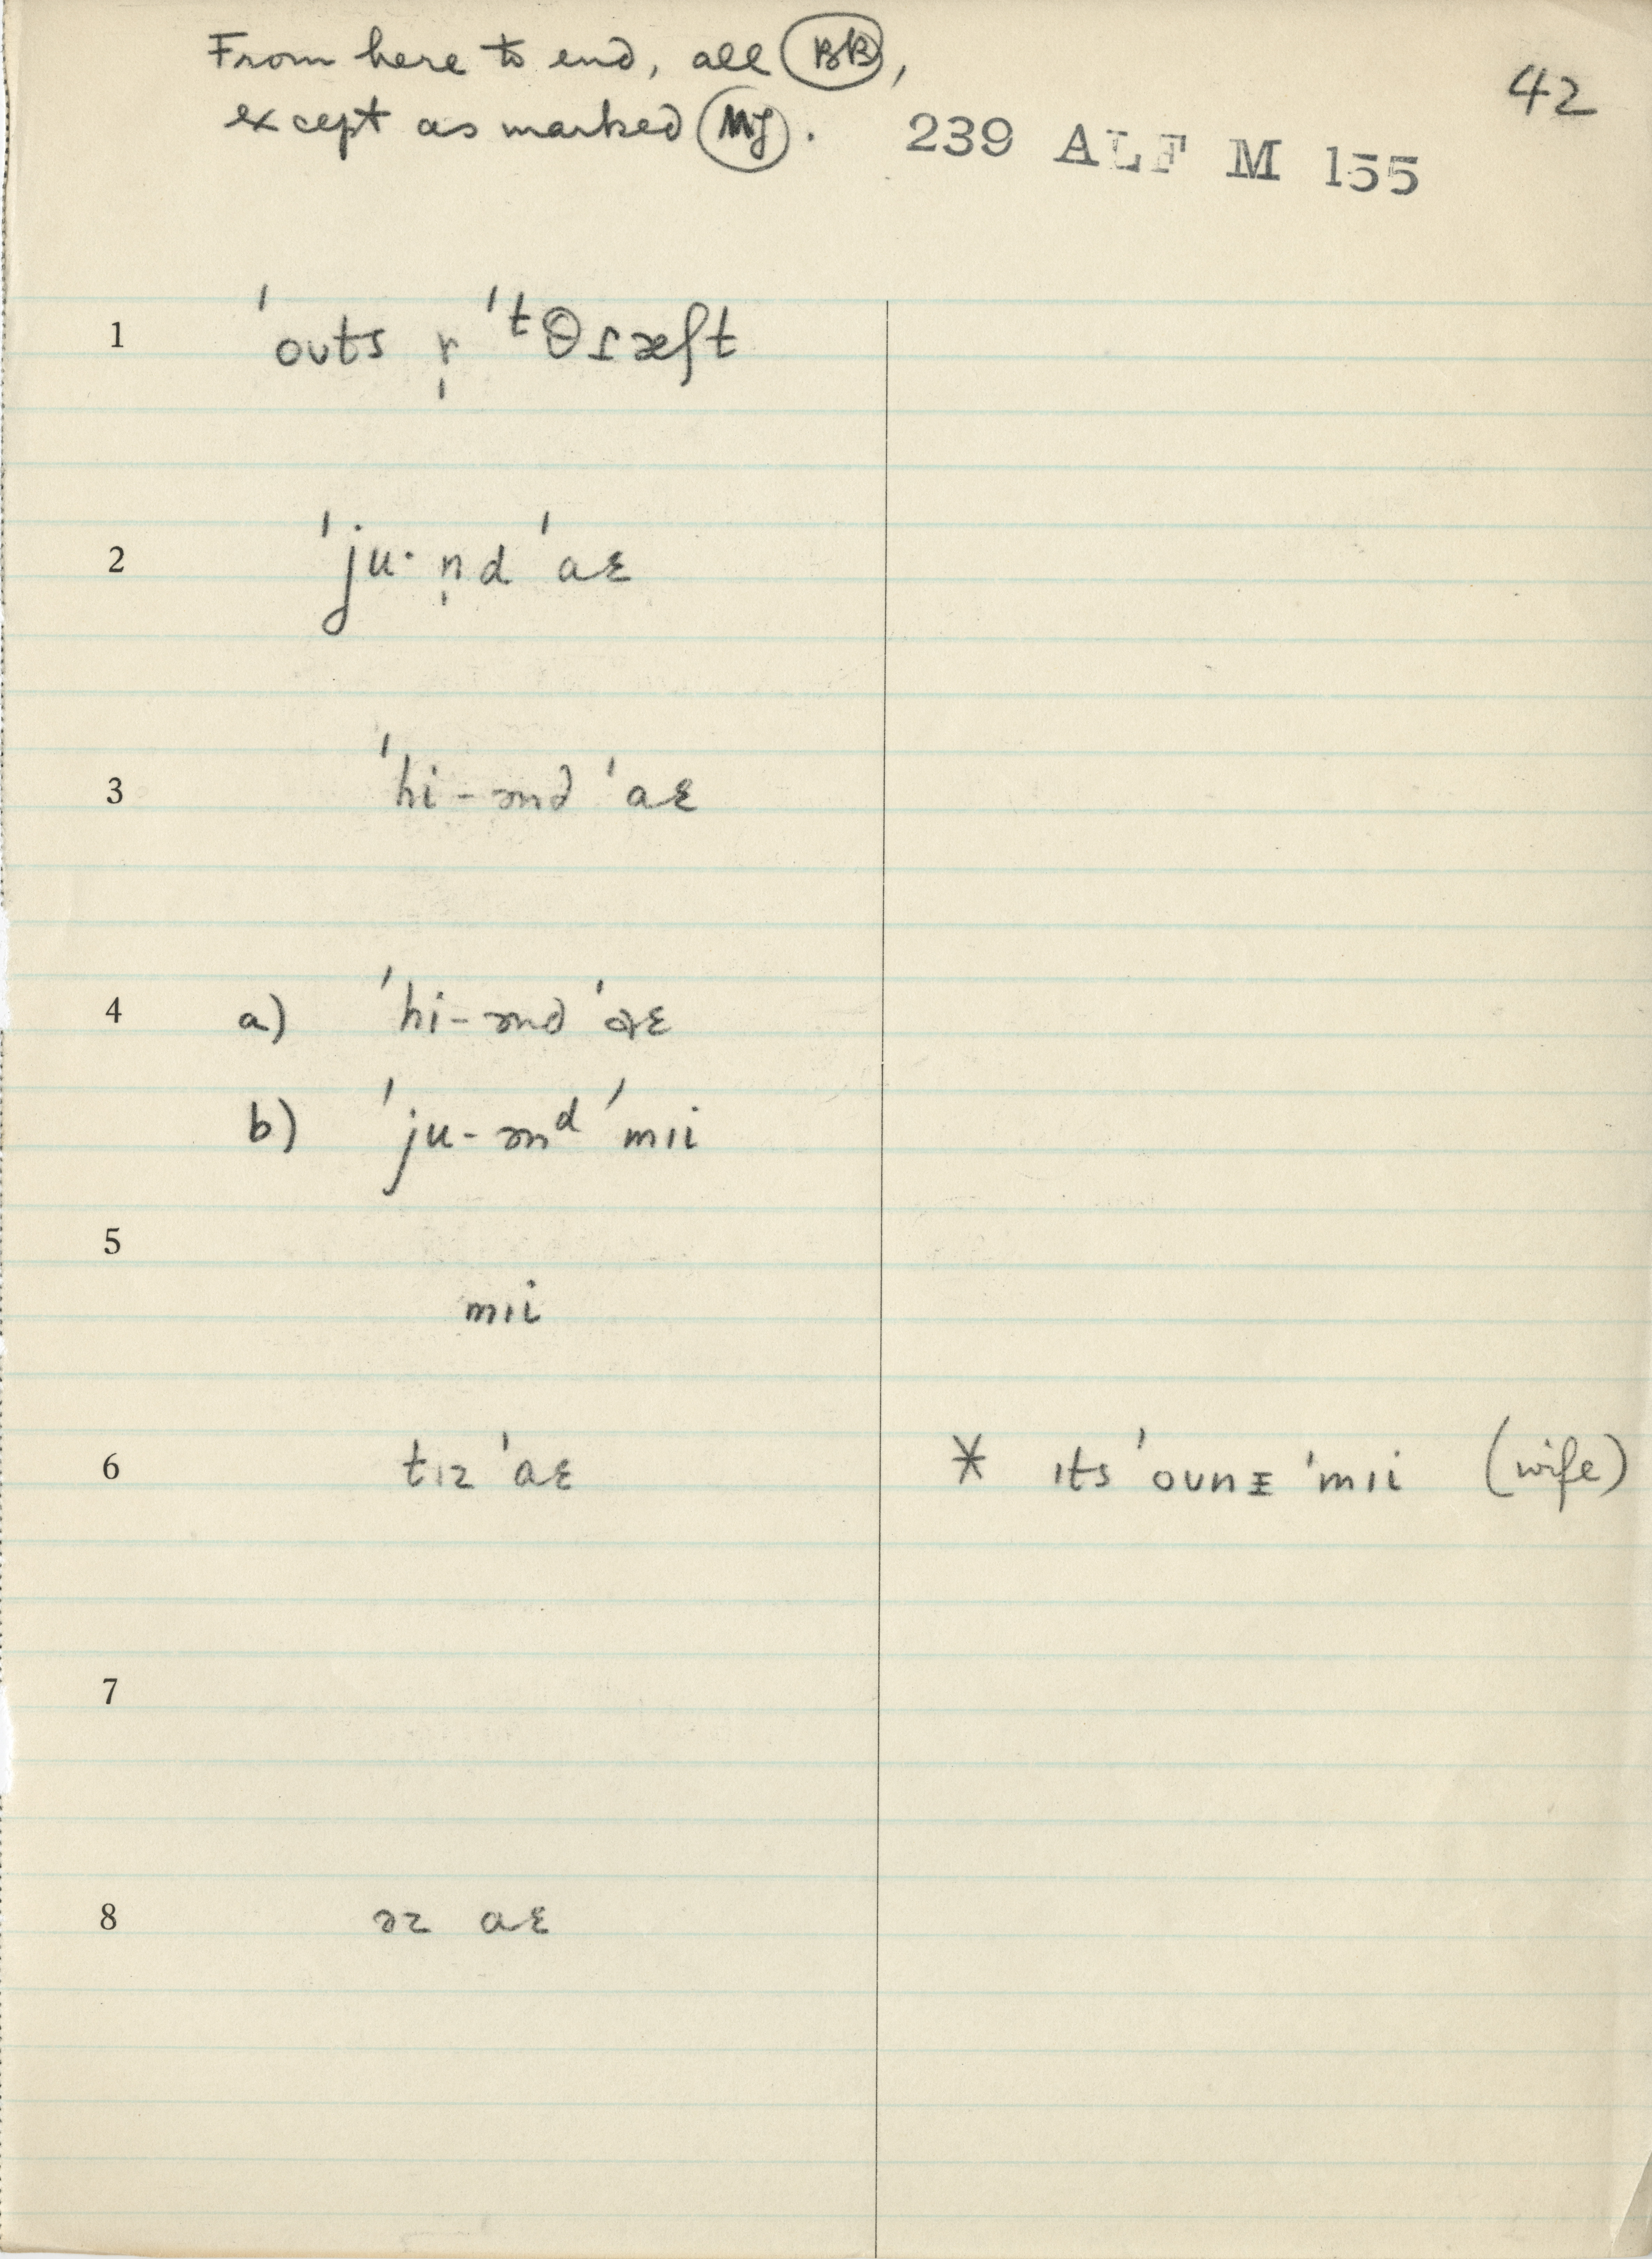 From here to end, all BB,
except as marked MJ.
42
239 ALF M 155
1 ˈouts r̩ ˈᵗθɾæʃt
2 ˈju· n̩d ˈaɛ
3 ˈhi-ənd ˈaɛ
4 a) ˈhi-ənd ˈɑɛ
b) ˈju-ənᵈ ˈmıi
5
mıi
6 tız ˈaɛ * ıts ˈounɪ ˈmıi (wife)
7
8 əz aɛ